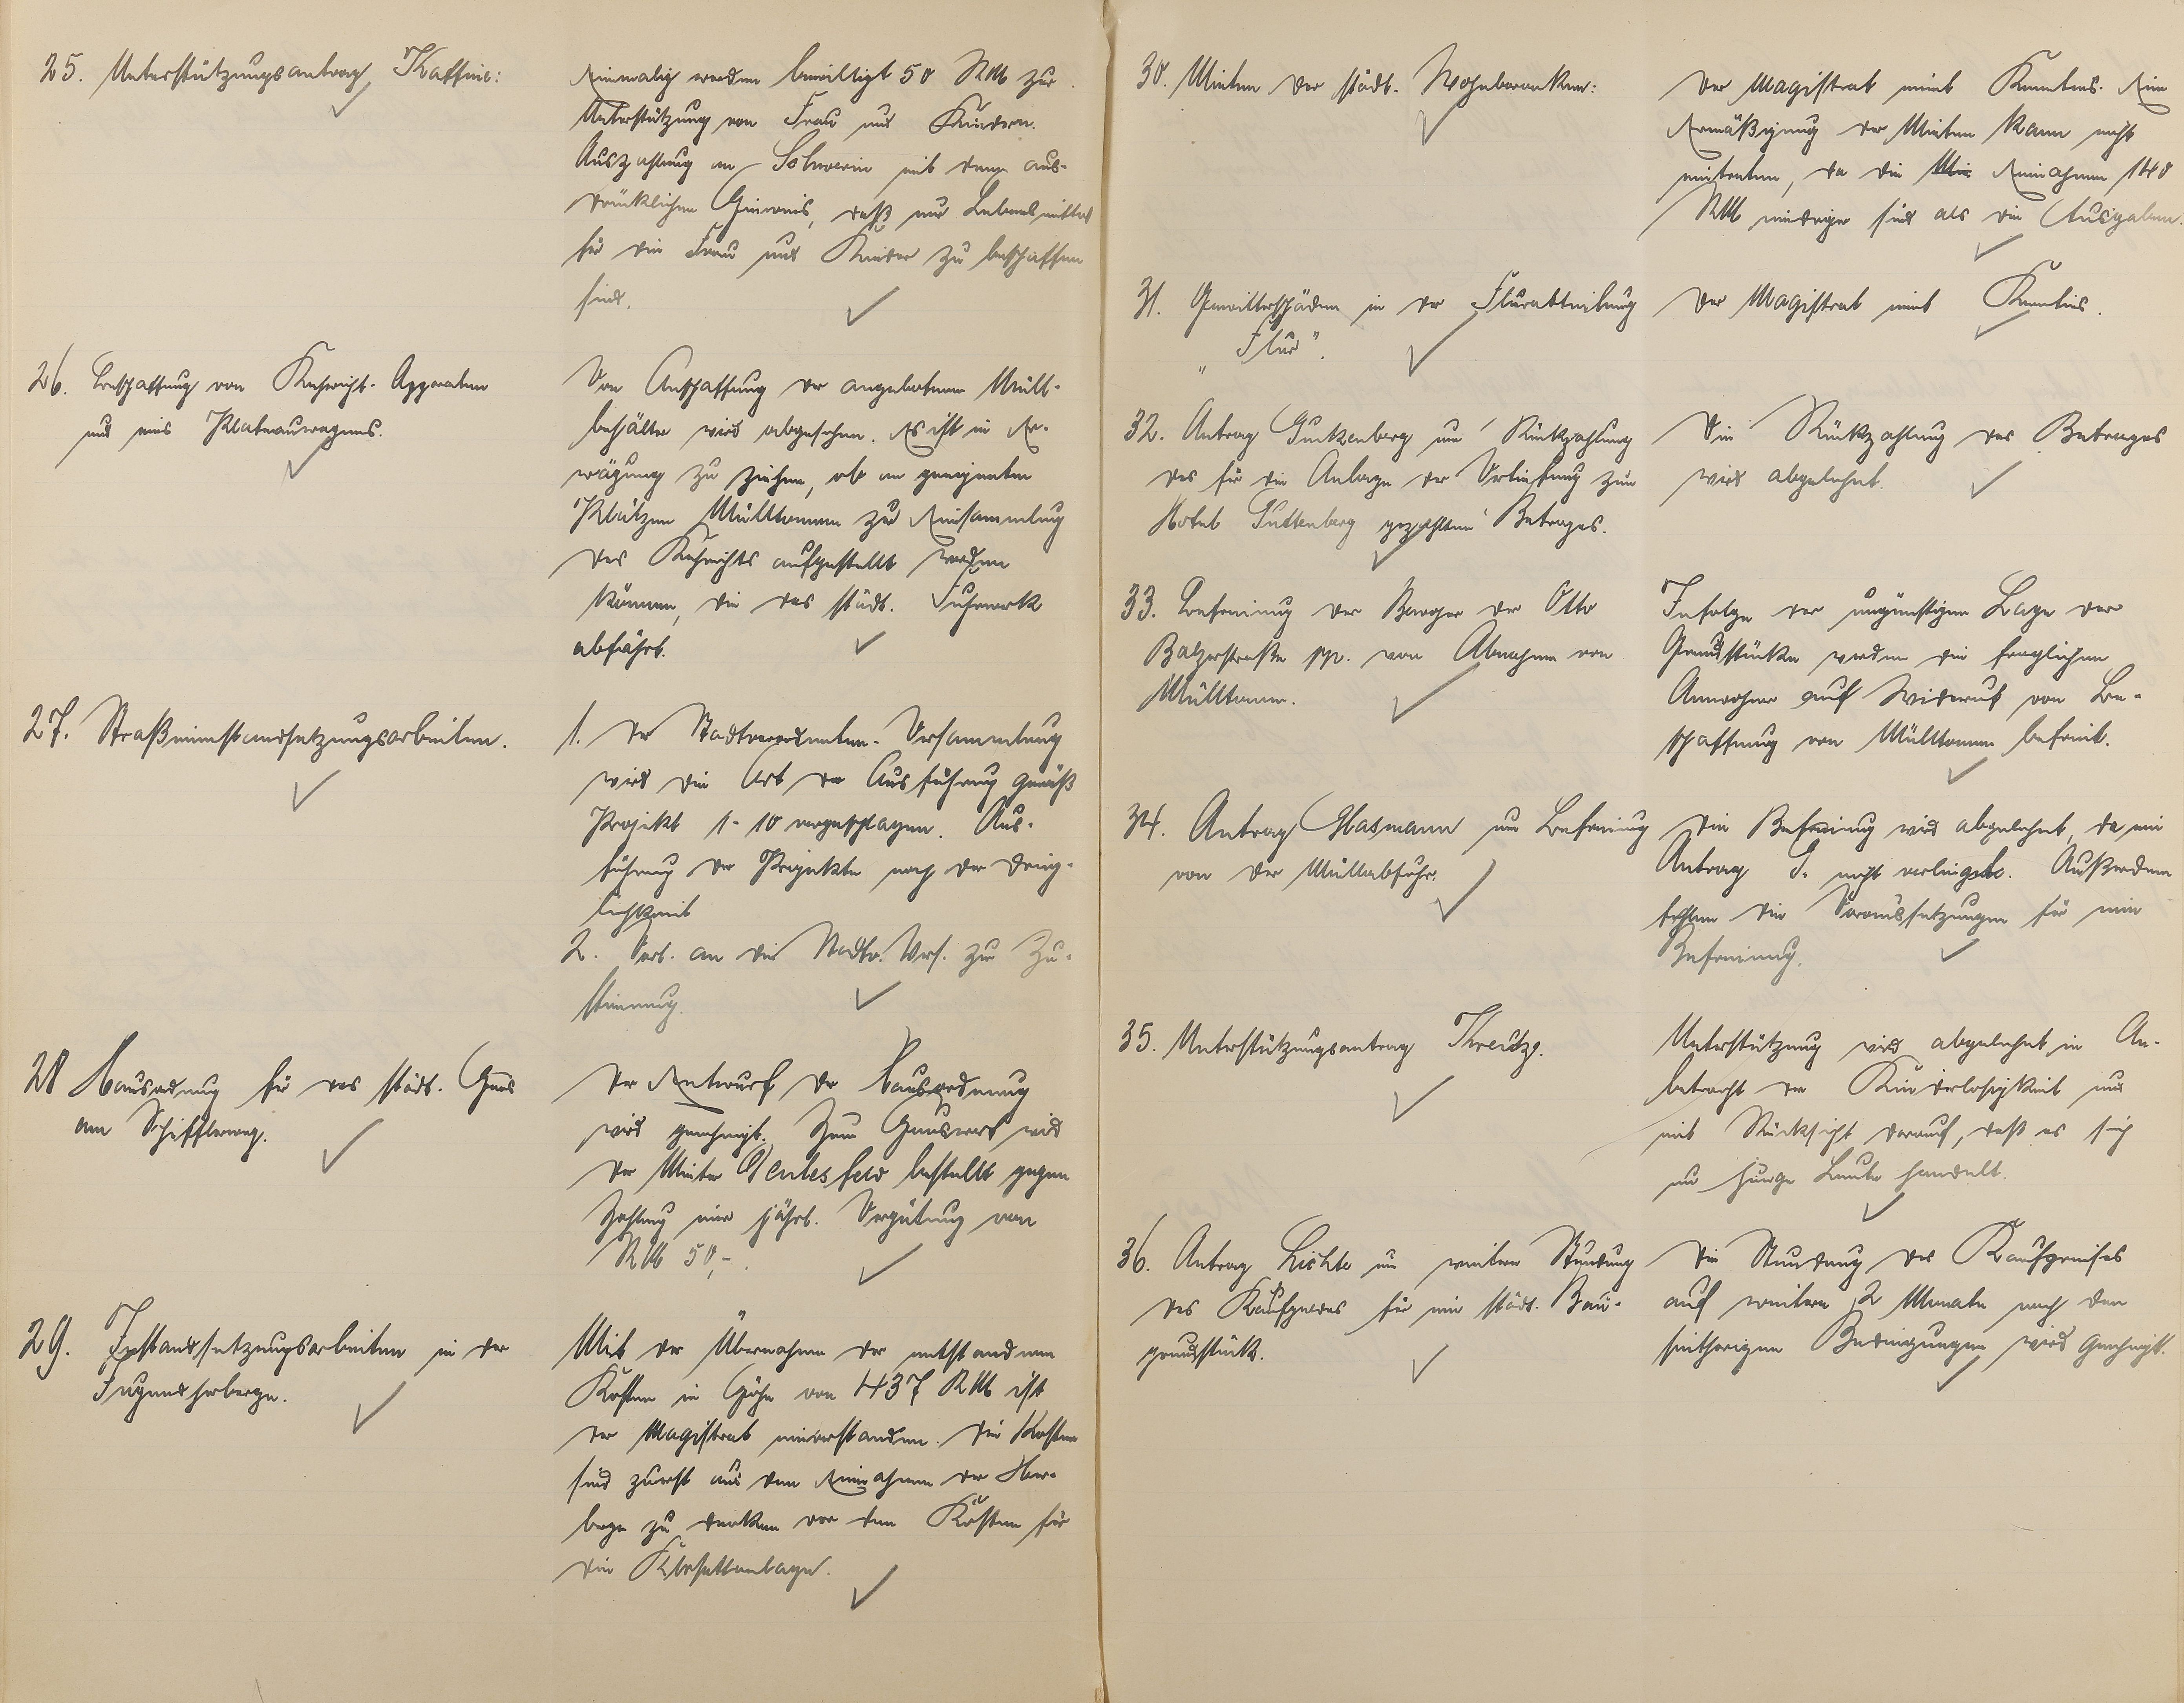 25. Unterstützungsantrag
Einmalig werden bewilligt 50 RM zur
Unterstützung von Frau und Kindern.
Auszahlung an Schwerin mit dem aus-
drücklichen Hinweis, daß nur Lebensmittel
für die Frau und Kinder zu beschaffen
sind.
26. Beschaffung von Kehricht-Apparaten
und eines Plateauwagens.
Von Anschaffung der angebotenen Müll-
behälter wird abgesehen. Es ist in Er-
wägung zu ziehen, ob an geeigneten
Plätzen Mülltonnen zur Einsammlung
des Kehrichts aufgestellt werden
können, die das städt. Fuhrwerk
abfährt.
27. Straßeninstandsetzungsarbeiten.
1. Der Stadtverordneten-Versammlung
wird die Art der Ausführung gemäß
Projekt 1-10 vorgeschlagen. Aus-
führung der Projekte nach der Dring-
lichkeit
2. Vorl. an die Stadtv. Vers. zur Zu-
stimmung.
28 Hausordnung für das städt. Haus
am Schifflerweg.
Der Entwurf der Hausordnung
wird genehmigt. Zum Hauswart wird
der Mieter bestellt gegen
Zahlung einer jährl. Vergütung von
RM 50,-.
29. Instandsetzungsarbeiten in der
Jugendherberge.
Mit der Übernahme der entstandenen
Kosten in Höhe von 437 RM ist
der Magistrat einverstanden. Die Kosten
sind zuerst aus den Einnahmen der Her-
berge zu decken vor den Kosten für
die Klosettanlage.
30. Mieten der städt. Wohnbaracken:
Der Magistrat nimt Kenntnis. Eine
Ermäßigung der Mieten kann nicht
eintreten, da die Einnahmen 140
RM niedriger sind als die Ausgaben.
31. Gewitterschäden in der Flurabteilung
"Flur".
Der Magistrat nimt Kenntnis.
32. Antrag Guttenberg um Rückzahlung
des für die Anlage der Vertiefung zum
Hotel Guttenberg gezahlten Betrages.
Die Rückzahlung des Betrages
wird abgelehnt.
33. Befreiung der Bewohner der Otto
Balzerstraße pp. von Abnahme von
Mülltonnen.
Infolge der ungünstigen Lage der
Grundstücke werden die fraglichen
Anwohner auf Widerruf von Be-
schaffung von Mülltonnen befreit.
34. Antrag Glasmann um Befreiung
von der Müllabfuhr.
Die Befreiung wird abgelehnt, da ein
Antrag G. nicht vorliegt. Außerdem
fehlen die Voraussetzungen für eine
Befreiung.
35. Unterstützungsantrag Kreutz.
Unterstützung wird abgelehnt in An-
betracht der Kinderlosigkeit und
mit Rücksicht darauf, daß es sich
um junge Leute handelt.
36. Antrag Lichte um weitere Stundung
des Kaufgeldes für ein städt. Bau-
grundstück.
Die Stundung des Kaufpreises
auf weitere 2 Monate nach den
seitherigen Bedingungen wird genehmigt.